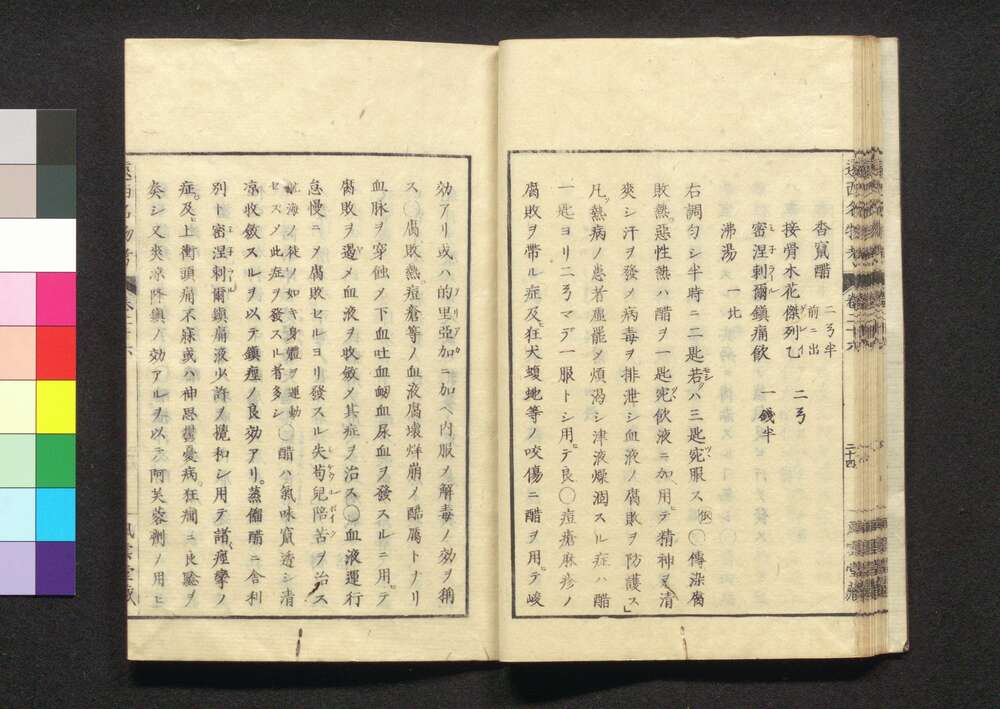 香竄醋 二弓半 前ニ出
接骨木花傑列乙 二弓
密涅剌爾鎮痛飲 一錢半
沸湯 一比
右調匀シ半時ニ二匙若クハ三匙宛服ス 〇傳染腐
敗熱惡性熱ハ醋ヲ一匙宛飲液ニ加ヘ用テ精神ヲ清
爽シ汗ヲ發メ病毒ヲ排泄シ血液ノ腐敗ヲ防護ス」
凡ソ熱病ノ患者虛羸メ煩渴シ津液燥涸スル症ハ醋
一匙ヨリ二弓マデ一服トシ用テ良〇痘瘡麻疹ノ
腐敗ヲ帶ル症及ヒ狂犬蝮虵等ノ咬傷ニ醋ヲ用テ峻
効アリ或ハ的里亞加ニ加ヘ内服ノ解毒ノ効ヲ稱
ス〇腐敗熱痘瘡等ノ血液腐壞烊崩メ酷厲トナリ
血脉ヲ穿蝕メ下血吐血衂血尿血ヲ發スルニ用テ
腐敗ヲ遏メ血液ヲ收斂メ其症ヲ治ス〇血液運行
怠慢ニメ腐敗セルヨリ發スル失苟兒陪苦ヲ治ス
航海ノ徒ノ如キ身體ヲ運動
セズメ此症ヲ發スル者多シ〇醋ハ氣味竄透シ清
凉收斂スルヲ以テ鎮痙ノ良効アリ蒸餾醋ニ含利
別ト密涅剌爾鎮痛液少許ノ攪和シ用テ諸痙攣ノ
症及ヒ上衝頭痛不寐或ハ神思鬱憂病狂癇ニ良驗ヲ
奏シ又爽凉降鎮ノ効アルヲ以テ阿芙蓉劑ヲ用ヒ
遠西名物考 卷二十六
二十四
風雲堂藏